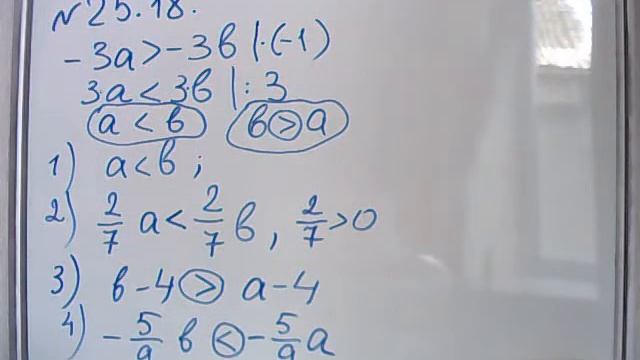 №25.18.
-3a>-3b |·(-1)
3a<3b |:3
a<b b>a
1) a<b;
2) 2/7 a < 2/7 b, 2/7 > 0
3) b-4 > a-4
4) -5/9 b < -5/9 a